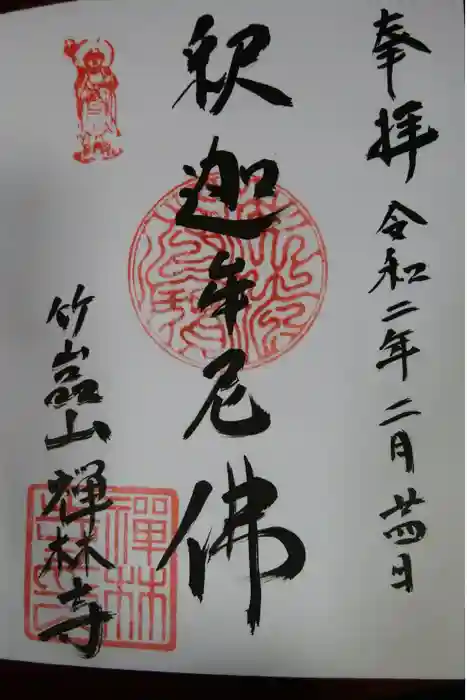 奉拝 令和二年 二月廿四日
釈迦牟尼佛
竹嵓山 禅林寺
禪林